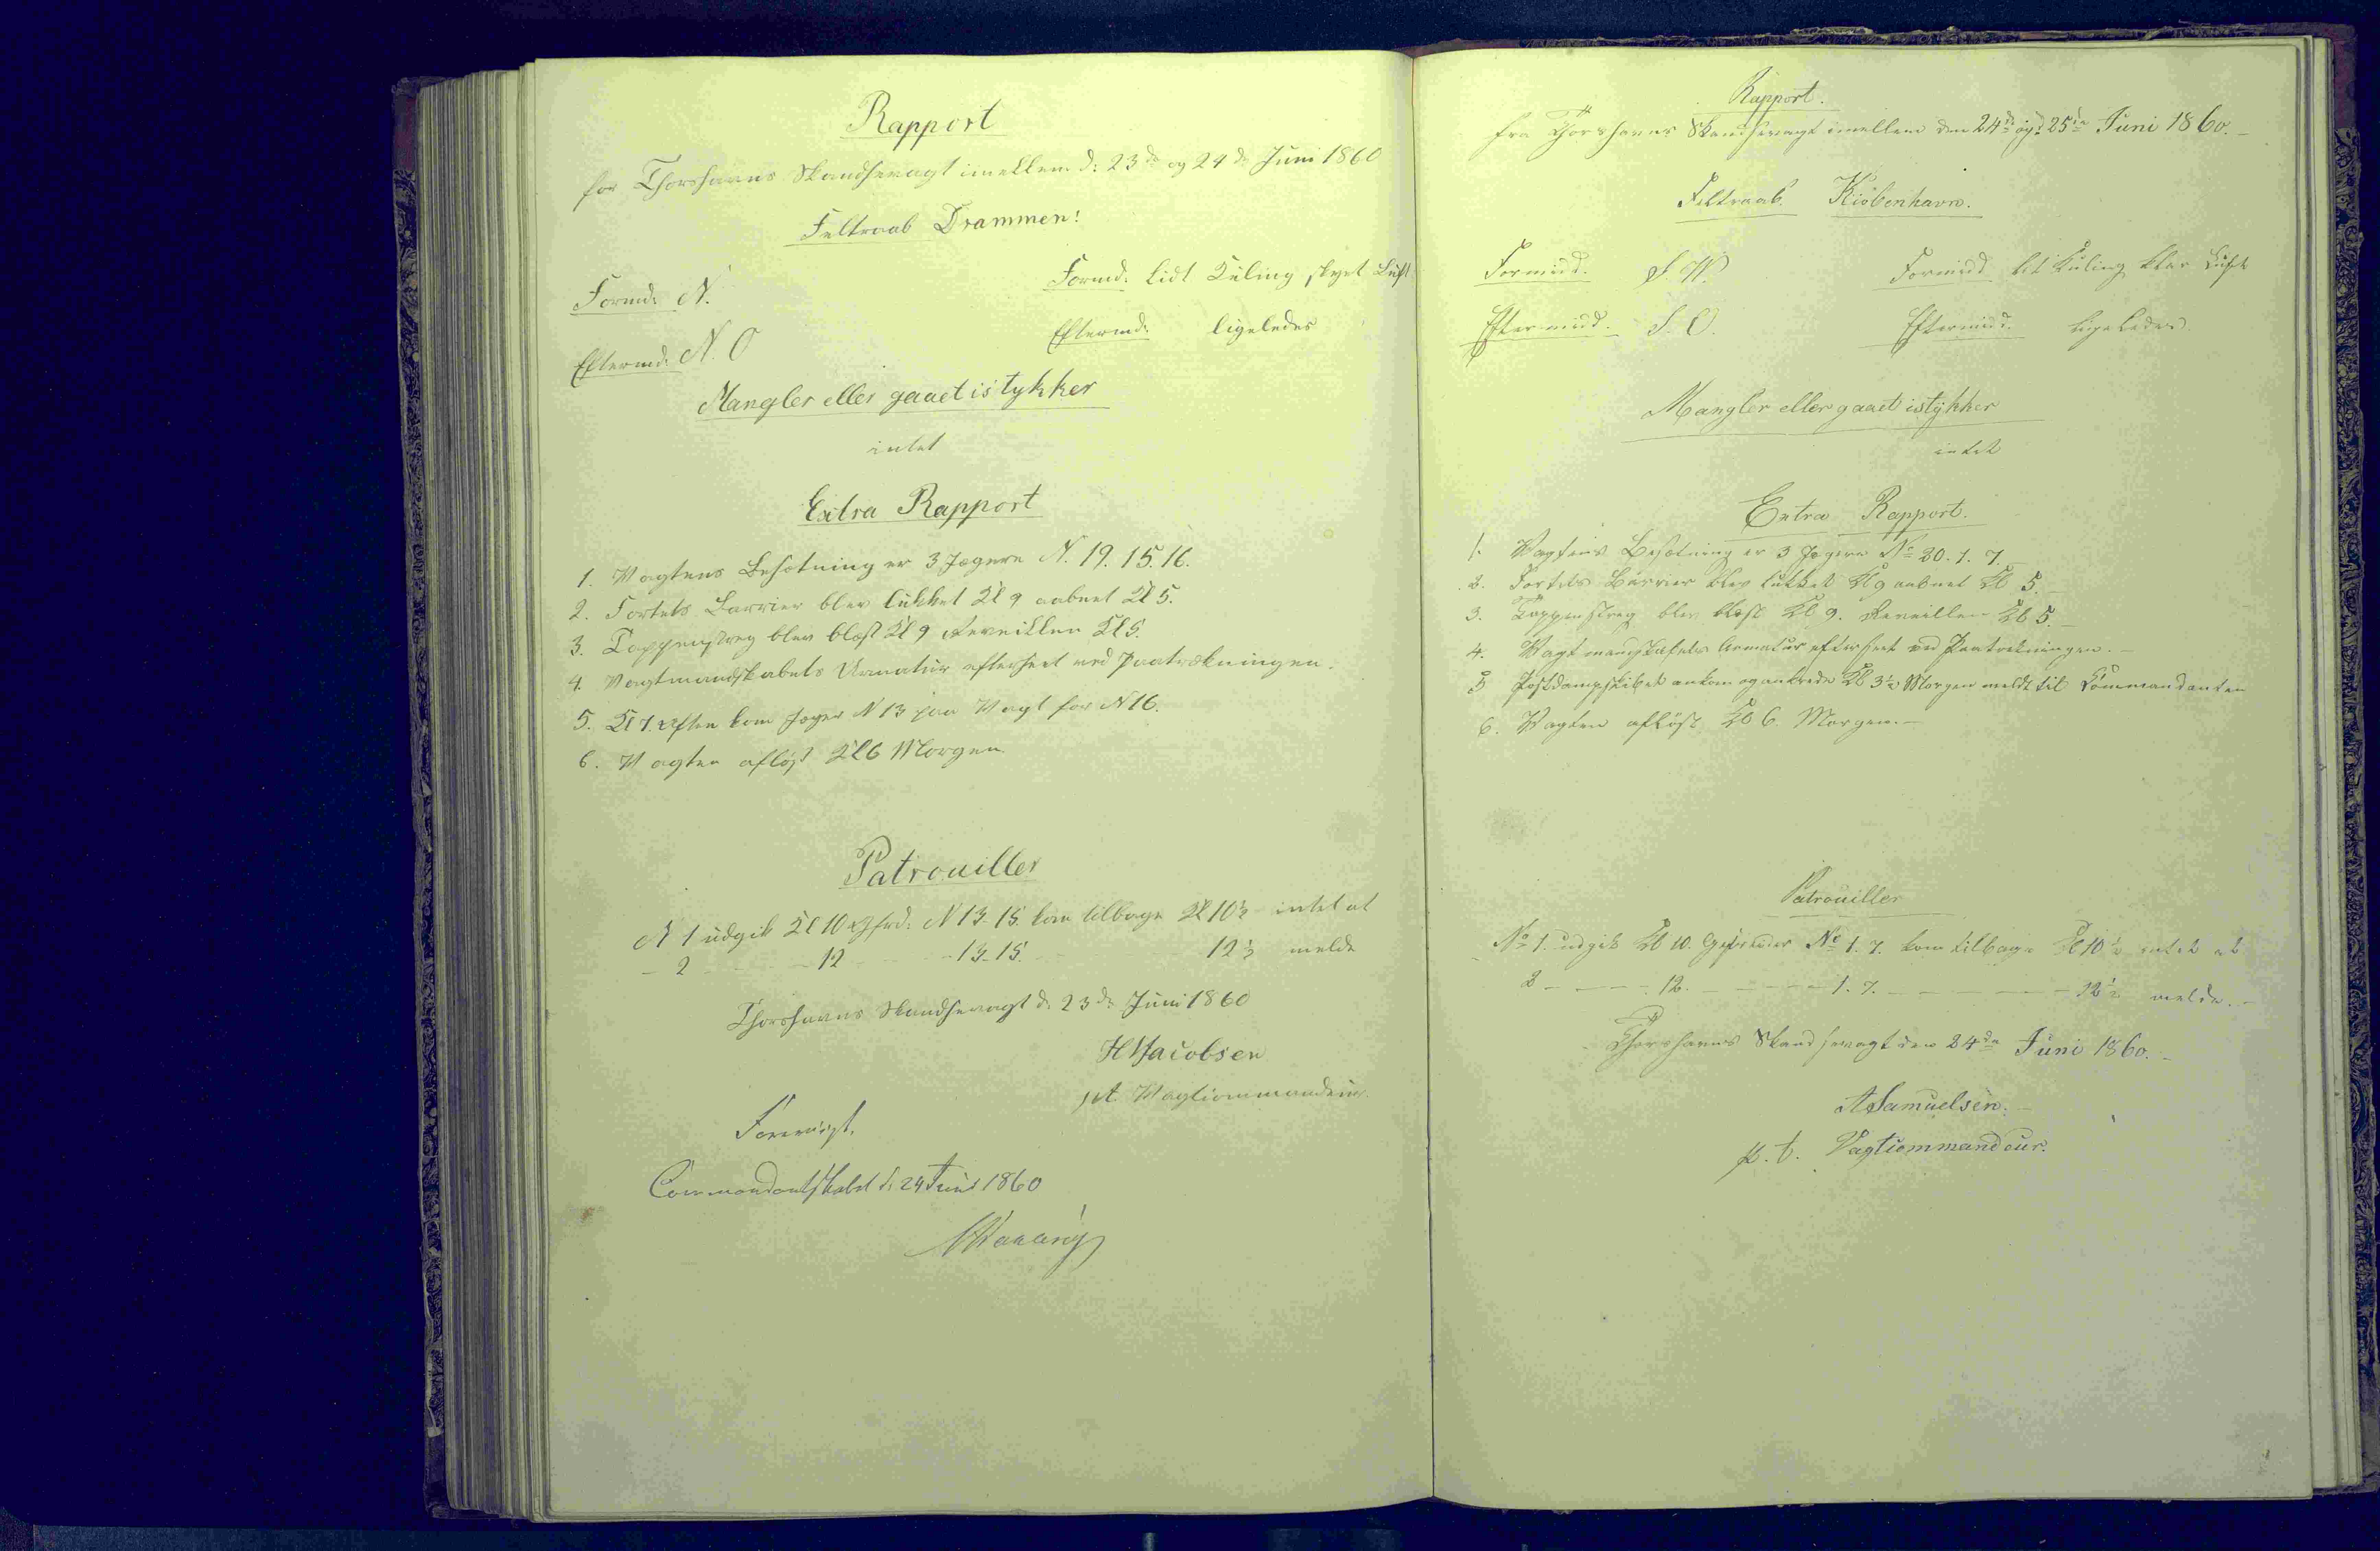 Rapport
for Thorshavns Skandsevagt imellem d: 23de og 24de Juni 1860
Feltraab Drammen!
Formd: N. Formd: lidt Kuling skyet Luft
Eftermd: N. O Eftermd: ligeledes
Mangler eller gaaet istykker
intet
Extra Rapport
1. Vagtens Besætning er 3 Jægere N. 19. 15. 16.
2. Fortets Barrier blev lukket Kl 9 aabnet Kl 5.
3. Tappenstreg blev blæst Kl 9 Reveillen Kl 5.
4. Vagtmandskabets Armatur efterseet ved Paatrækningen.
5. Kl 7 Aften kom Jæger N 13 paa Vagt for N 16.
6. Vagten afløst Kl 6 Morgen
Patrouiller
N 1 udgik Kl 10 N 13-15. kom tilbage Kl 10½ intet at
- 2 - - - 12 - - - 13-15. 12½ melde
Thorshavns Skandsevagt d. 23de Juni 1860
HJacobsen
pt. Vagtcommandeur.
Foreviist.
Commandantskabet d: 24 Juni 1860
Rapport.
fra Thorshavns Skandsevagt imellem den 24de og d 25de Juni 1860.-
Feltraab. Kiöbenhavn.
Formidd. S. W. Formidd lit Kuling klar Luft
Eftermidd. S. O. Eftermidd. ligeledes.
Mangler eller gaaet istykker
intet
Extra Rapport.
1. Vagtens Besætning er 3 Jægere No 20. 1. 7.
2. Fortets Barrier blev lukket Kl 9 aabnet Kl 5.-
3. Tappenstreg blev blæst Kl 9. Reveillen Kl 5.-
4. Vagtmandskabets Armatur efterseet ved Paatrækningen.-
5 Postdampskibet ankom og ankrede Kl 3½ Morgen meldt til Commandanten
6. Vagten aflöst Kl 6. Morgen.-
Patrouiller
No 1. udgik Kl 10. Gefreider No 1. 7. kom tilbage Kl 10½ intet at
2 - - - 12. - - - - 1. 7. - - - - 12½ melde.-
Thorshavns Skandsevagt den 24de Juni 1860.-
ASamuelsen.-
p. t. Vagtcommandeur.